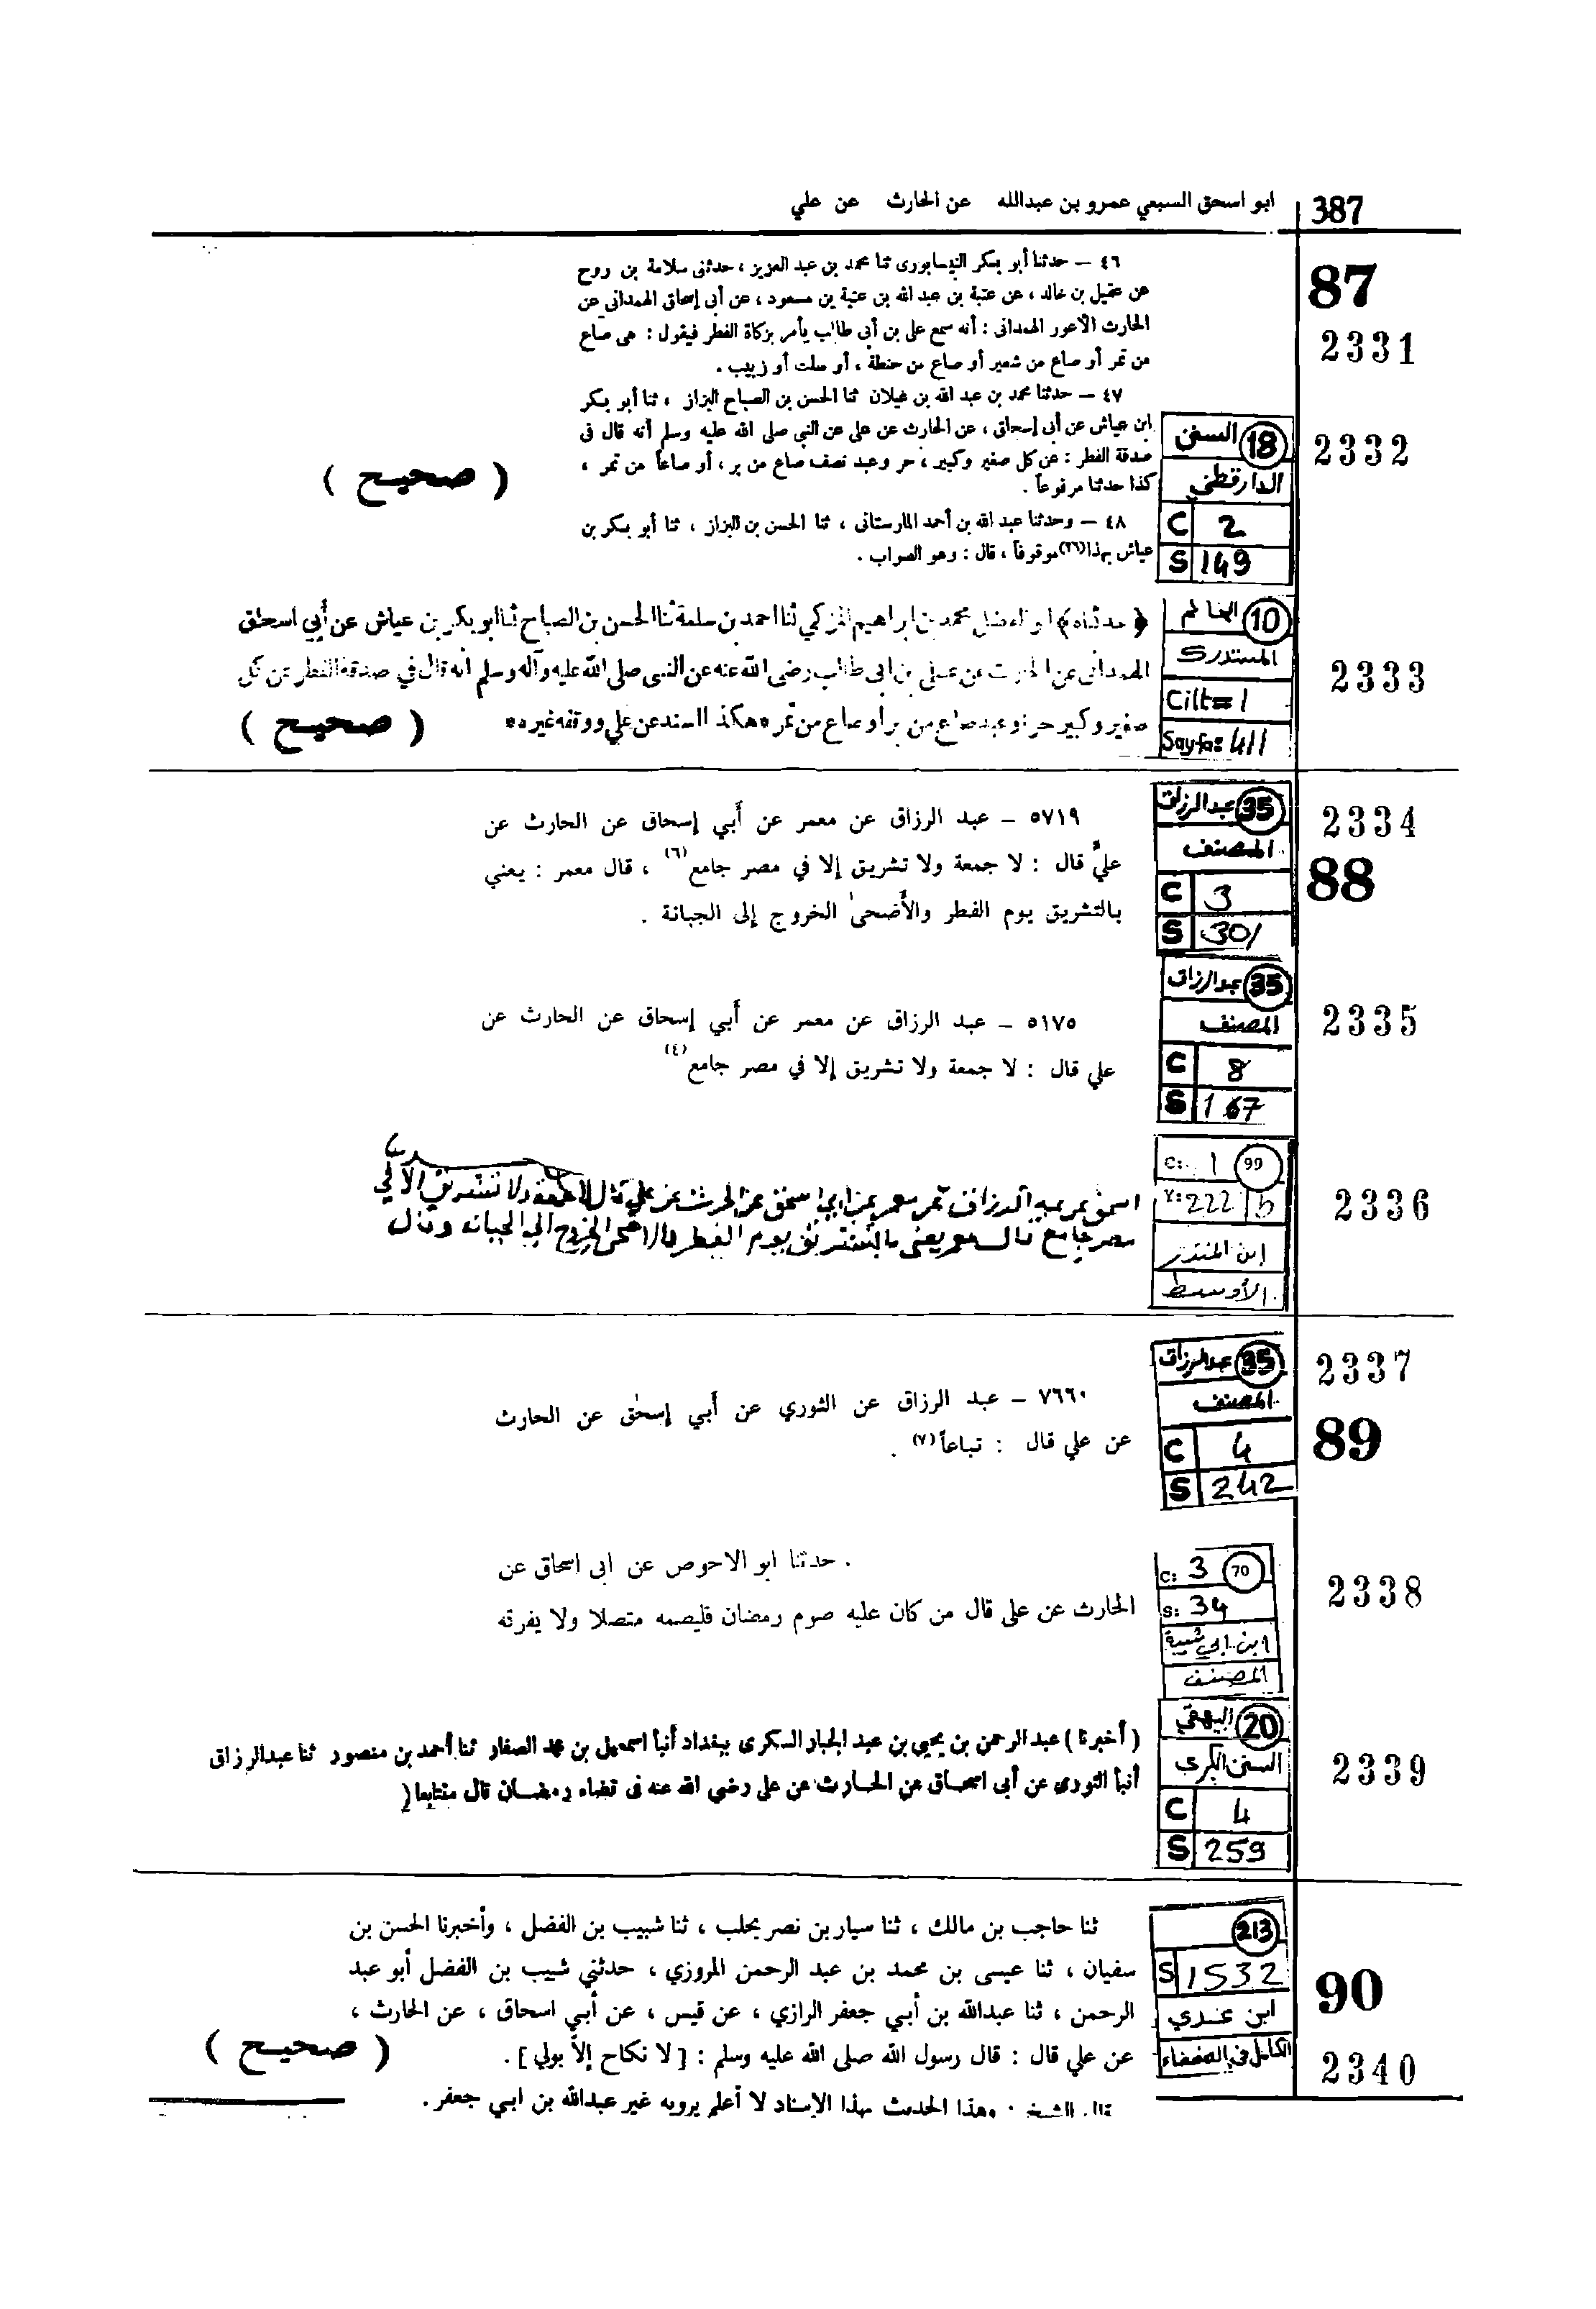 ابو اسحق السبعي عمرو بن عبدالله عن الحارث عن علي
387
87
٤٦ — حدثنا أبو بكر النيسابورى ثنا محمد بن عبد العزيز ، حدثنى سلامة بن روح
عن عقيل بن خالد ، عن عتبة بن عبد الله بن عتبة بن مسعود ، عن أبى إسحاق الهمدانى عن
الحارث الأعور الهمدانى : أنه سمع على بن أبى طالب يأمر بزكاة الفطر فيقول : هى صاع
من تمر أو صاع من شعير أو صاع من حنطة ، أو سلت أو زبيب .
2331
٤٧ — حدثنا محمد بن عبد الله بن غيلان ثنا الحسن بن الصباح البزاز ، ثنا أبو بكر
ابن عياش عن أبى إسحاق ، عن الحارث عن على عن النبى صلى الله عليه وسلم أنه قال فى
صدقة الفطر : عن كل صغير وكبير ، حر وعبد نصف صاع من بر ، أو صاعاً من تمر ،
كذا حدثنا مرفوعاً .
( صحيح )
٤٨ — وحدثنا عبد الله بن أحمد المارستانى ، ثنا الحسن بن البزاز ، ثنا أبو بكر بن
عياش بهذا(٢٦)موقوفاً ، قال : وهو الصواب .
18 السنن
الدارقطني
C 2
S 149
2332
﴿ حدثناه ﴾ ابو الفضل محمد بن ابراهيم المزكي ثنا احمد بن سلمة ثنا الحسن بن الصباح ثنا ابو بكر بن عياش عن أبي اسحاق
الهمدانى عن الحارث عن على بن ابى طالب رضى الله عنه عن النبى صلى الله عليه وآله وسلم أنه قال في صدقة الفطر عن كل
صغير وكبير حر او عبد صاع من بر أو صاع من تمر * هكذا اسند عن علي ووقفه غيره *
( صحيح )
10 الحاكم
المستدرك
Cilt= 1
Sayfa: 411
2333
٥٧١٩ – عبد الرزاق عن معمر عن أبي إسحاق عن الحارث عن
عليّ قال : لا جمعة ولا تشريق إلا في مصر جامع(٦) ، قال معمر : يعني
بالتشريق يوم الفطر والأضحىٰ الخروج إلى الجبانة .
35 عبدالرزاق
المصنف
C 3
S 301
2334
88
٥١٧٥ – عبد الرزاق عن معمر عن أبي إسحاق عن الحارث عن
علي قال : لا جمعة ولا تشريق إلا في مصر جامع(٤)
35 عبدالرزاق
المصنف
C 8
S 167
2335
اسحق عن عبد الرزاق عن معمر عن ابي اسحق عن الحرث عن علي قال لا جمعة ولا تشريق الا في
مصر جامع قال معمر يعنى بالتشريق يوم الفطر والاضحى الخروج الي الجبانه وقال
C: 1 99
V: 222/b
ابن المنذر
الأوسط
2336
٧٦٦٠ – عبد الرزاق عن الثوري عن أبي إسحٰق عن الحارث
عن علي قال : تباعاً(٧) .
35 عبدالرزاق
المصنف
C 4
S 242
2337
89
. حدثنا ابو الاحوص عن ابى اسحاق عن
الحارث عن على قال من كان عليه صوم رمضان فليصمه متصلا ولا يفرقه
C: 3 70
S: 34
ابن ابي شيبة
المصنف
2338
( أخبرنا ) عبد الرحمن بن يحيى بن عبد الجبار السكرى ببغداد أنبأ اسمعيل بن محمد الصفار ثنا أحمد بن منصور ثنا عبدالرزاق
أنبأ الثورى عن أبى اسحاق عن الحارث عن على رضي الله عنه فى قضاء رمضان قال متتابعا(
20 البيهقي
السنن الكبرى
C 4
S 259
2339
ثنا حاجب بن مالك ، ثنا سيار بن نصر بحلب ، ثنا شبيب بن الفضل ، وأخبرنا الحسن بن
سفيان ، ثنا عيسى بن محمد بن عبد الرحمن المروزي ، حدثني شبيب بن الفضل أبو عبد
الرحمن ، ثنا عبدالله بن أبي جعفر الرازي ، عن قيس ، عن أبي اسحاق ، عن الحارث ،
عن علي قال : قال رسول الله صلى الله عليه وسلم : [ لا نكاح إلاّ بولي ] .
( صحيح )
قال الشيخ : وهذا الحديث بهذا الإسناد لا أعلم يرويه غير عبدالله بن ابي جعفر .
213
S 1532
ابن عدي
الكامل في الضعفاء
90
2340